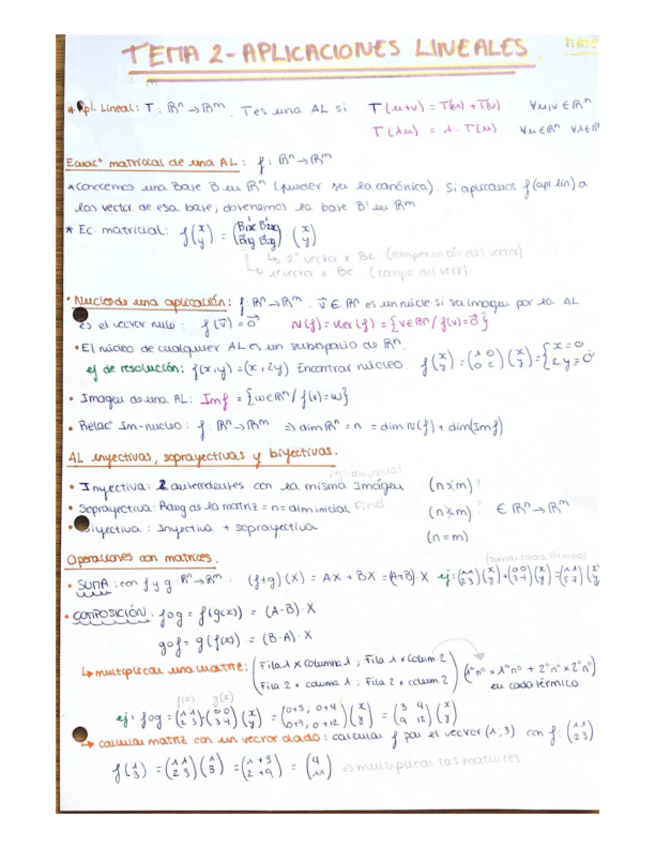 TEMA 2 - APLICACIONES LINEALES MATE
* Apl. Lineal: T: ℝⁿ → ℝᵐ. T es una AL si T(u+v) = T(u) + T(v) ∀u,v ∈ ℝⁿ
T(λu) = λ · T(u) ∀u∈ℝⁿ ∀λ∈ℝ
Ecuacº matricial de una AL: f: ℝⁿ → ℝᵐ
* Conocemos una Base B en ℝⁿ (puede ser la canónica). Si aplicamos f(apl lin) a
los vector. de esa base, obtenemos la base B' en ℝᵐ
* Ec. matricial: f(x y) = (B1x B2x B1y B2y) · (x y)
↳ 2º vector x BC (componentes del vector)
↳ 1º vector x BC (compo del vect)
• Nucleo de una aplicación: f: ℝⁿ → ℝᵐ. v⃗ ∈ ℝⁿ es un núcle si su imagen por la AL
es el vector nulo: f(v⃗) = 0⃗ N(f) = Ker(f) = {v∈ℝⁿ / f(v) = 0⃗}
• El núcleo de cualquier AL es un subespacio de ℝⁿ.
ej de resolución: f(x,y) = (x, 2y) Encontrar núcleo. f(x y) = (1 0 0 2)(x y) = {x=0 2y=0
• Imagen de una AL: Im f = {w∈ℝᵐ / f(v) = w}
• Relacº Im-nucleo: f: ℝⁿ → ℝᵐ ⇒ dim ℝⁿ = n = dim N(f) + dim(Im f)
AL inyectivas, soprayectivas y biyectivas.
• Inyectiva: 2 antecedentes con la misma imágen (n≤m)?
• Soprayectiva: Rang de la matriz = n = dim inicial Final (n≤m)? ∈ ℝⁿ → ℝᵐ
• Biyectiva: Inyectiva + soprayectiva (n=m)
Operaciones con matrices.
(sumas cada término)
• SUMA: con f y g: ℝⁿ → ℝᵐ: (f+g)(X) = AX + BX = (A+B)·X ej: (1 1 2 3)(x y) + (0 0 3 4)(x y) = (1 1 5 7)(x y
• COMPOSICIÓN: fog = f(g(x)) = (A·B)·X
gof = g(f(x)) = (B·A)·X
↳ multiplicar una matriz: (Fila 1 x Columna 1 ; Fila 1 x Colum 2 Fila 2 x columna 1 ; Fila 2 x colum 2) (1ºnº x 1ºnº + 2ºnº x 2ºnº) en cada término
f(x) g(x)
ej: fog = (1 1 2 3)·(0 0 3 4)(x y) = (0+3; 0+4 0+9; 0+12)(x y) = (3 4 9 12)(x y)
↳ calcular matriz con un vector dado: calcular f por el vector (1,3) con f: (1 1 2 3)
f(1 3) = (1 1 2 3)(1 3) = (1+3 2+9) = (4 11) ⇒ multiplicar las matrices